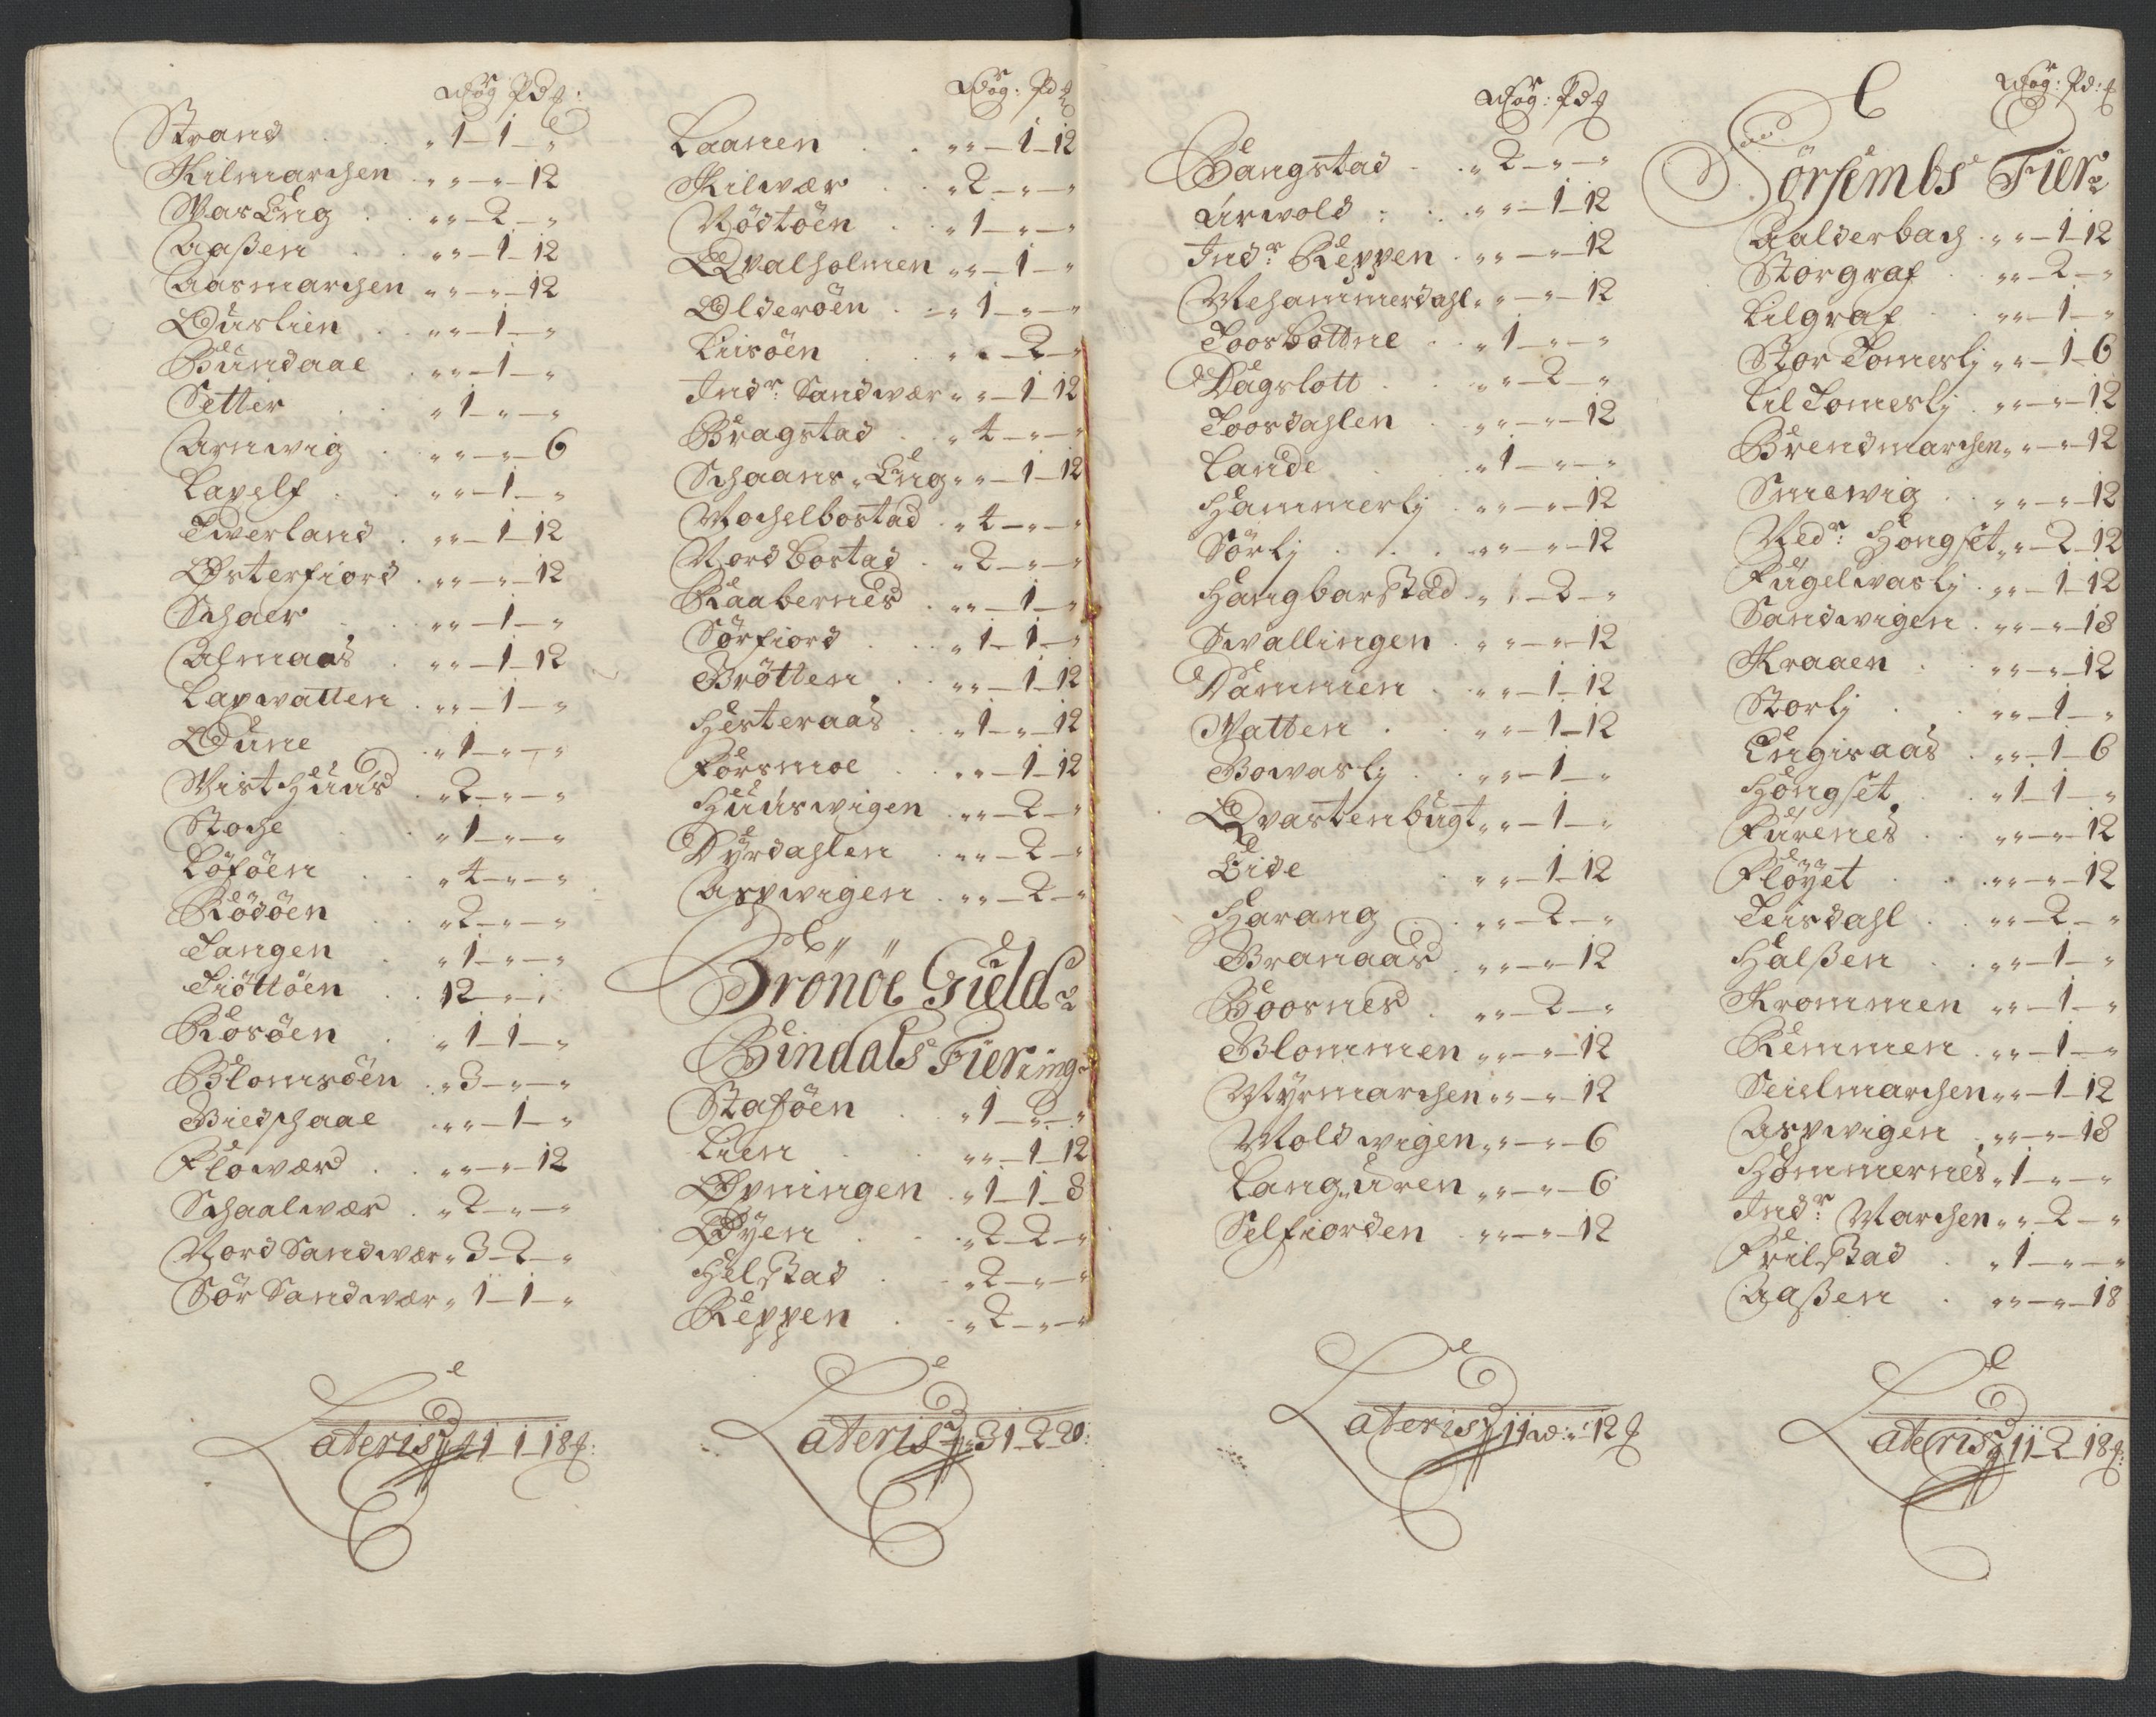 Wog Pd
Strand . . „ 1 – 1 – „
Kilmarchen . „ „ – „ – 12
Mas Eng . „ „ – 2 – „
Aaßen . „ „ – 1 – 12
Aasmarchen „ „ – „ – 12
Duslien . „ „ – 1 – „
Bundaae . „ „ – 1 – „
Setter . . „ 1 – „ – „
Arnwig . „ „ – „ – 6
Lapelf . „ „ – 1 – „
Twerland . „ „ – 1 – 12
Østerfiord . „ „ – „ – 12
Schaer . „ „ – 1 – „
Almaas . „ „ – 1 – 12
Lapwatten . „ „ – 1 – „
Dune . „ 1 – „ – „
Mist Huus . „ 2 – „ – „
Stoche . „ 1 – „ – „
Löföen . „ 4 – „ – „
Rödöen . „ 2 – „ – „
Tangen . „ 1 – „ – „
Tiöttöen . 12 – „ – „
Rosöen . „ 1 – 1 – „
Blomsöen . „ 3 – „ – „
Biedschaae „ „ – 1 – „
Flowær . „ „ – „ – 12
Schaalwær . „ 2 – „ – „
Nord Sandwær „ 3 – 2 – „
Sör Sandwær „ 1 – 1 – „
Lateris 41 – 1 – 18
Wog: Pd
Laanen . „ „ – 1 – 12
Kilwær . „ 2 – „ – „
Rödtöen . „ 1 – „ – „
Qvalholmen „ „ – 1 – „
Olderöen . „ 1 – „ – „
Liisöen . „ „ – 2 – „
Indr: Sandwær „ „ – 1 – 12
Bragstad . „ 4 – „ – „
Schaans Eng „ „ – 1 – 12
Mochelbostad . „ 4 – „ – „
Nord bostad . „ 2 – „ – „
Raabernes . „ „ – 1 – „
Sörfiord . „ 1 – 1 – „
Brötten . „ „ – 1 – 12
Hesteraas . „ 1 – „ – 12
Forsmoe . „ „ – 1 – 12
Huuswigen . „ „ – 2 – „
Dyrdahlen . „ „ – 2 – „
Aspwigen . „ „ – 2 – „
Brönöe Gield
Bindals Fiering
Staföen . „ 1 – 2 – „
Lien . „ „ – 1 – 12
Øpningen . „ 1 – 1 – 8
Øyen . „ 2 – 2 – „
Helstad . „ 2 – „ – „
Reppen . „ 2 – „ – „
Lateris 31 – 2 – 20:
Wog: Pd
Bangstad . „ 2 – „ – „
Urwold : . „ „ – 1 – 12
Indr: Reppen . „ „ – „ – 12
Mehammerdahl „ „ – „ – 12
Toosbottne . „ 1 – „ – „
Dagslott . „ „ – 2 – „
Toosdahlen . „ „ – „ – 12
Lande . „ 1 – „ – „
Hammerlj . „ „ – „ – 12
Sörlj . . . „ „ – „ – 12
Hangbarstad . „ 1 – 2 – „
Swallingen . „ „ – „ – 12
Dammen . „ „ – 1 – 12
Vatten . „ „ – 1 – 12
Bowaslj . „ „ – 1 – „
Qvastenbugt „ „ – 1 – „
Eide . „ „ – 1 – 12
Harang . „ „ – 2 – „
Branaas . „ „ – „ – 12
Boosnes . „ „ – 2 – „
Blommen „ „ – „ – 12
Myrmarchen „ „ – „ – 12
Moldwigen „ „ – „ – 6
Languren „ „ – „ – 6
Selfiorden . „ „ – „ – 12
Lateris 11 w: „ 12
Wog: Pd:
Sörsembs Fier
Aalderbach . „ „ – 1 – 12
Storgraf . „ „ – 2 – „
Lilgraf . „ „ – 1 – „
Stor Tomeslj „ „ – 1 – 6
Lil Tomeslj . „ „ – „ – 12
Brendmarchen „ „ – „ – 12
Smewig . „ „ – „ – 12
Nedr: Hongset „ „ – 2 – 12
Fugelwaslj . „ „ – 1 – 12
Sandwigen . „ „ – „ – 18
Kraaen . „ „ – „ – 12
Storlj . „ „ – 1 – „
Engisaas . „ „ – 1 – 6
Hongset . „ 1 – 1 – „
Furenes . „ „ – „ – 12
Flöyet . „ „ – „ – 12
Teisdahl . „ „ – 2 – „
Halßen . „ „ – 1 – „
Krommen „ „ – 1 – „
Remmen . „ „ – 1 – „
Seielmarchen „ „ – 1 – 12
Aspwigen . „ „ – „ – 18
Hommernes „ 1 – „ – „
Indr: Marchen „ „ – 2 – „
Frilstad . „ 1 – „ – „
Aaßen . „ „ – „ – 18
Lateris 11 – 2 – 18